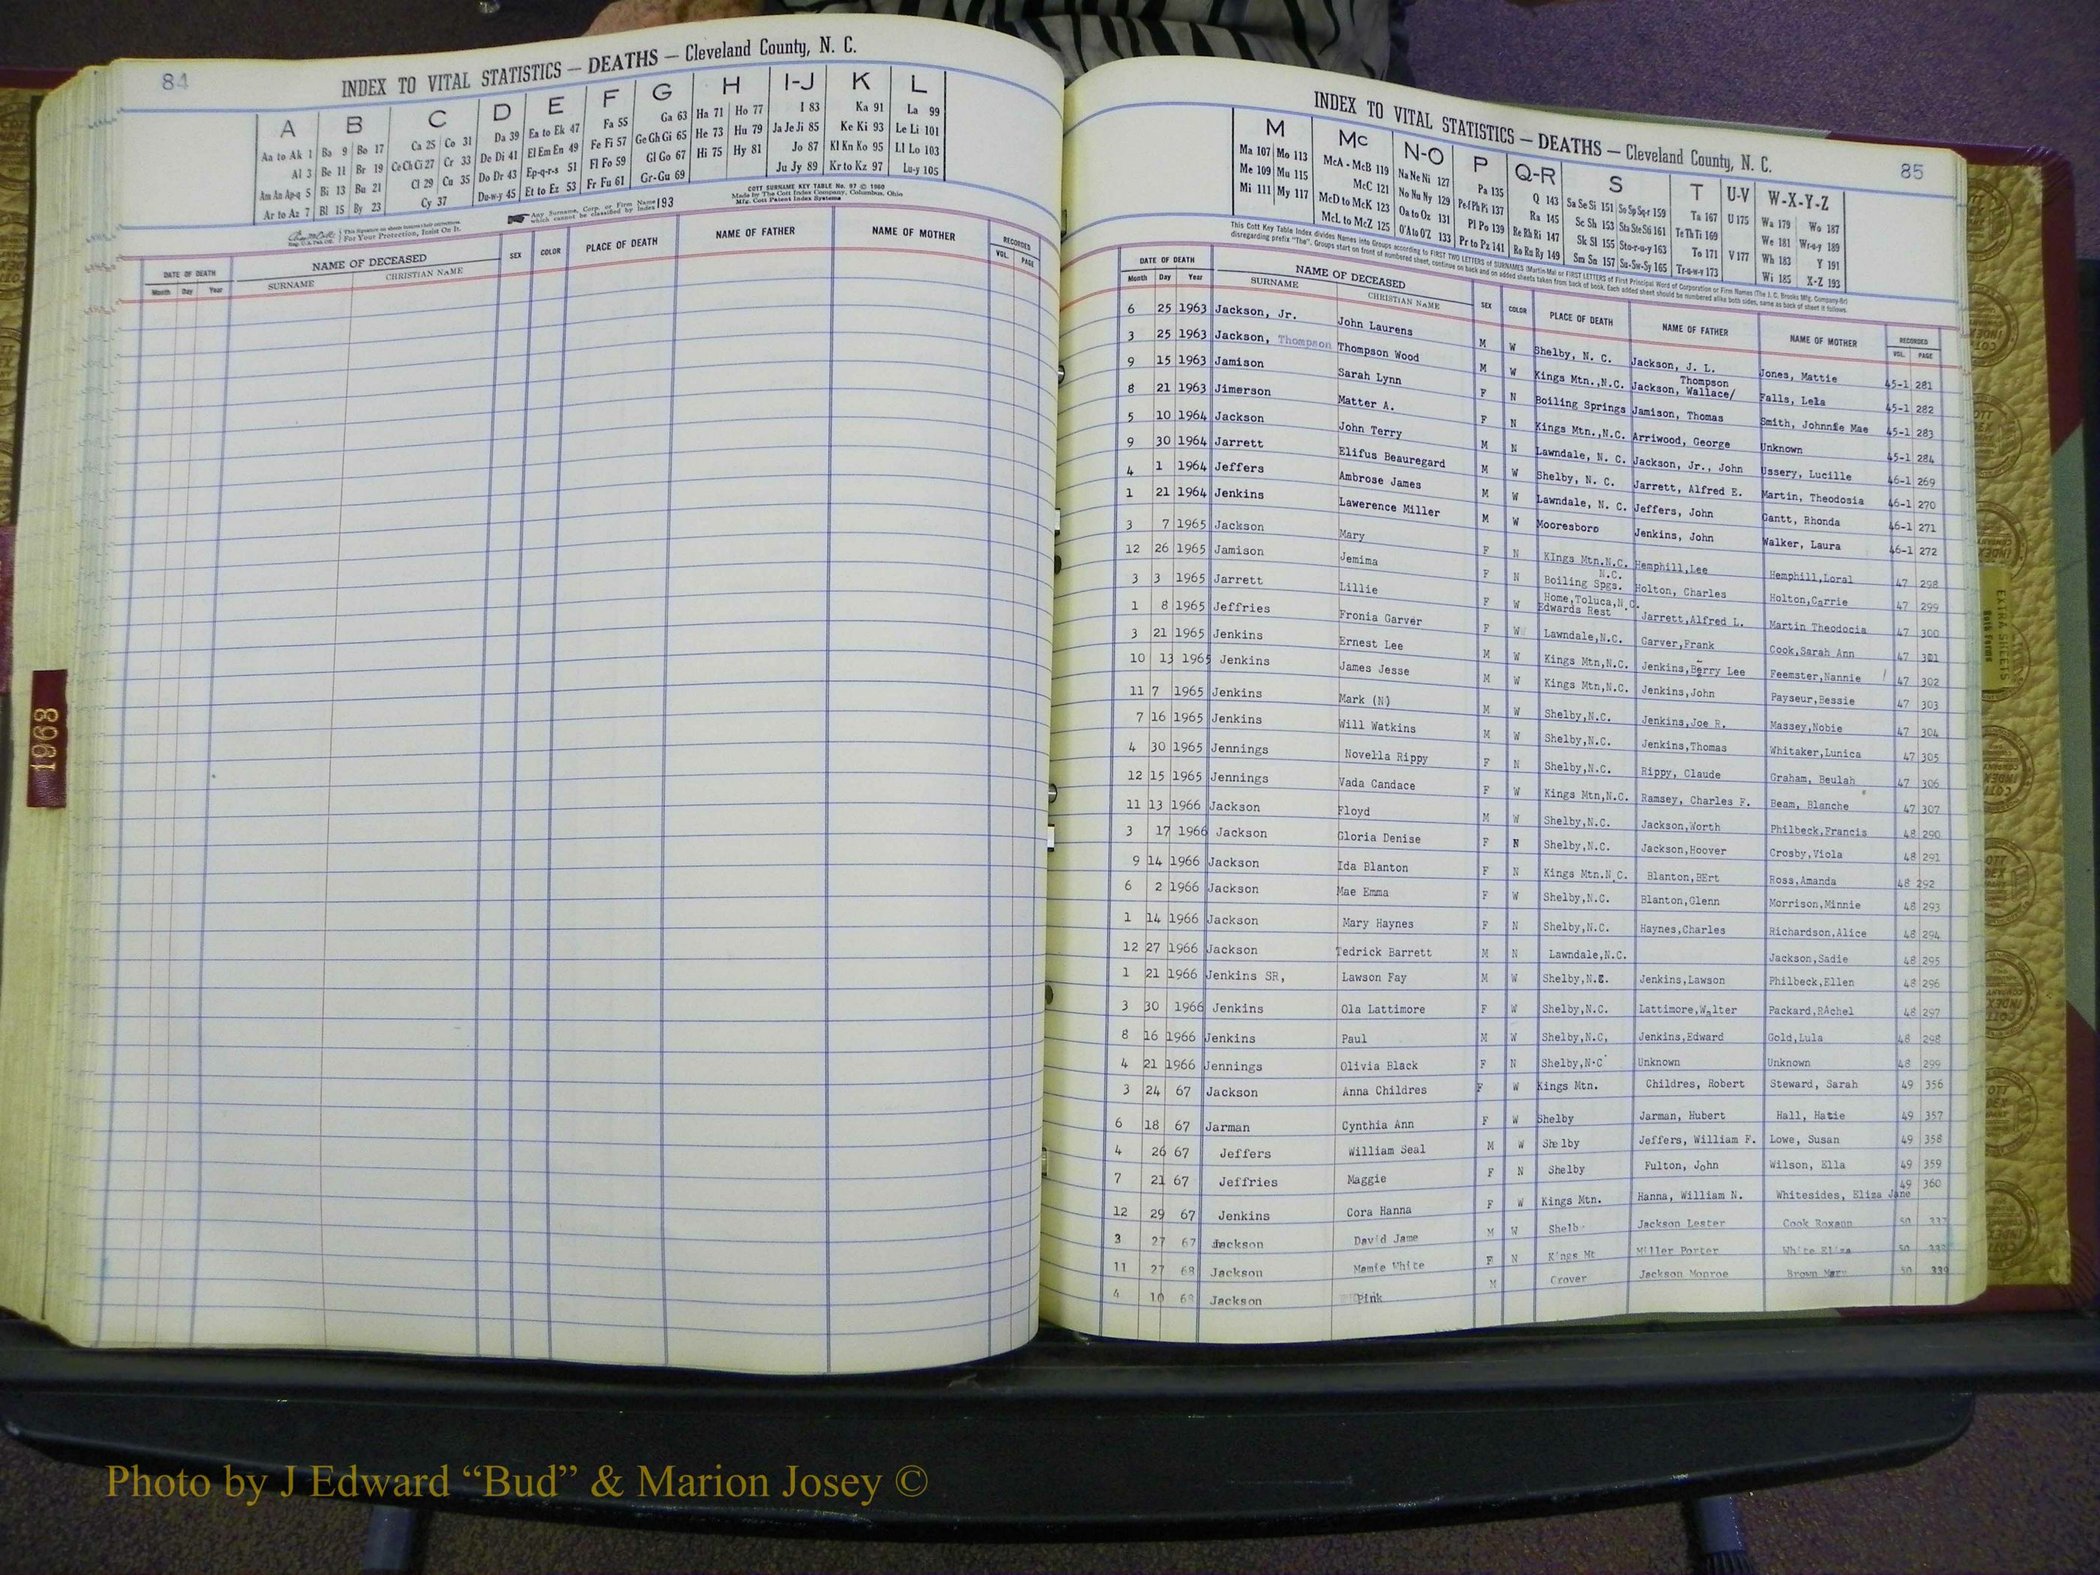 84
INDEX TO VITAL STATISTICS — DEATHS — Cleveland County, N. C.
A B C D E F G H I-J K L
Aa to Ak 1 Ba 9 Bo 17 Ca 25 Co 31 Da 39 Ea to Ek 47 Fa 55 Ga 63 Ha 71 Ho 77 I 83 Ka 91 La 99
Al 3 Be 11 Br 19 Ce Ch Ci 27 Cr 33 De Di 41 El Em En 49 Fe Fi 57 Ge Gh Gi 65 He 73 Hu 79 Ja Je Ji 85 Ke Ki 93 Le Li 101
Am An Ap-q 5 Bi 13 Bu 21 Cl 29 Cu 35 Do Dr 43 Ep-q-r-s 51 Fl Fo 59 Gl Go 67 Hi 75 Hy 81 Jo 87 Kl Kn Ko 95 Ll Lo 103
Ar to Az 7 Bl 15 By 23 Cy 37 Du-w-y 45 Et to Ez 53 Fr Fu 61 Gr-Gu 69 Ju Jy 89 Kr to Kz 97 Lu-y 105
COTT SURNAME KEY TABLE No. 97 © 1960
Made by The Cott Index Company, Columbus, Ohio
Mfg. Cott Patent Index Systems
Any Surname, Corp. or Firm Name which cannot be classified by Index 193
This Signature on sheets insures their correctness.
For Your Protection, Insist On It.
DATE OF DEATH NAME OF DECEASED SEX COLOR PLACE OF DEATH NAME OF FATHER NAME OF MOTHER RECORDED
Month Day Year SURNAME CHRISTIAN NAME VOL. PAGE
1968
INDEX TO VITAL STATISTICS — DEATHS — Cleveland County, N. C.
85
M Mc N-O P Q-R S T U-V W-X-Y-Z
Ma 107 Mo 113 McA - McB 119 Na Ne Ni 127 Pa 135 Q 143 Sa Se Si 151 So Sp Sq-r 159 Ta 167 U 175 Wa 179 Wo 187
Me 109 Mu 115 McC 121 No Nu Ny 129 Pe-f Ph Pi 137 Ra 145 Sc Sh 153 Sta Ste Sti 161 Te Th Ti 169 We 181 Wr-u-y 189
Mi 111 My 117 McD to McK 123 Oa to Oz 131 Pl Po 139 Re Rh Ri 147 Sk Sl 155 Sto-r-u-y 163 To 171 V 177 Wh 183 Y 191
McL to McZ 125 O'A to O'Z 133 Pr to Pz 141 Ro Ru Ry 149 Sm Sn 157 Su-Sw-Sy 165 Tr-u-w-y 173 Wi 185 X-Z 193
This Cott Key Table Index divides Names into Groups according to FIRST TWO LETTERS of SURNAMES (Martin-Ma) or FIRST LETTERS of First Principal Word of Corporation or Firm Names (The J. C. Brooks Mfg. Company-Br)
disregarding prefix "The". Groups start on front of numbered sheet, continue on back and on added sheets taken from back of book. Each added sheet should be numbered alike both sides, same as back of sheet it follows.
DATE OF DEATH NAME OF DECEASED SEX COLOR PLACE OF DEATH NAME OF FATHER NAME OF MOTHER RECORDED
Month Day Year SURNAME CHRISTIAN NAME VOL. PAGE
6 25 1963 Jackson, Jr. John Laurens M W Shelby, N. C. Jackson, J. L. Jones, Mattie 45-1 281
3 25 1963 Jackson, Thompson Thompson Wood M W Kings Mtn.,N.C. Jackson, Wallace/ Thompson Falls, Lela 45-1 282
9 15 1963 Jamison Sarah Lynn F N Boiling Springs Jamison, Thomas Smith, Johnnie Mae 45-1 283
8 21 1963 Jimerson Matter A. F N Kings Mtn.,N.C. Arriwood, George Unknown 45-1 284
5 10 1964 Jackson John Terry M N Lawndale, N. C. Jackson, Jr., John Ussery, Lucille 46-1 269
9 30 1964 Jarrett Elifus Beauregard M W Shelby, N. C. Jarrett, Alfred E. Martin, Theodosia 46-1 270
4 1 1964 Jeffers Ambrose James M W Lawndale, N. C. Jeffers, John Gantt, Rhonda 46-1 271
1 21 1964 Jenkins Lawerence Miller M W Mooresboro Jenkins, John Walker, Laura 46-1 272
3 7 1965 Jackson Mary F N KIngs Mtn.N.C. Hemphill,Lee Hemphill,Loral 47 298
12 26 1965 Jamison Jemima F N Boiling Spgs. N.C. Holton, Charles Holton,Carrie 47 299
3 3 1965 Jarrett Lillie F W Home,Toluca,N.C. Edwards Rest Jarrett,Alfred L. Martin Theodocia 47 300
1 8 1965 Jeffries Fronia Garver F W Lawndale,N.C. Garver,Frank Cook,Sarah Ann 47 301
3 21 1965 Jenkins Ernest Lee M W Kings Mtn,N.C. Jenkins,Berry Lee Feemster,Nannie 47 302
10 13 1965 Jenkins James Jesse M W Kings Mtn,N.C. Jenkins,John Payseur,Bessie 47 303
11 7 1965 Jenkins Mark (N) M W Shelby,N.C. Jenkins,Joe R. Massey,Nobie 47 304
7 16 1965 Jenkins Will Watkins M W Shelby,N.C. Jenkins,Thomas Whitaker,Lunica 47 305
4 30 1965 Jennings Novella Rippy F N Shelby,N.C. Rippy, Claude Graham, Beulah 47 306
12 15 1965 Jennings Vada Candace F W Kings Mtn,N.C. Ramsey, Charles F. Beam, Blanche 47 307
11 13 1966 Jackson Floyd M W Shelby,N.C. Jackson,Worth Philbeck,Francis 48 290
3 17 1966 Jackson Gloria Denise F N Shelby,N.C. Jackson,Hoover Crosby,Viola 48 291
9 14 1966 Jackson Ida Blanton F N Kings Mtn.N.C. Blanton,BErt Ross,Amanda 48 292
6 2 1966 Jackson Mae Emma F W Shelby,N.C. Blanton,Glenn Morrison,Minnie 48 293
1 14 1966 Jackson Mary Haynes F N Shelby,N.C. Haynes,Charles Richardson,Alice 48 294
12 27 1966 Jackson Tedrick Barrett M N Lawndale,N.C. Jackson,Sadie 48 295
1 21 1966 Jenkins SR, Lawson Fay M W Shelby,N.C. Jenkins,Lawson Philbeck,Ellen 48 296
3 30 1966 Jenkins Ola Lattimore F W Shelby,N.C. Lattimore,Walter Packard,RAchel 48 297
8 16 1966 Jenkins Paul M W Shelby,N.C, Jenkins,Edward Gold,Lula 48 298
4 21 1966 Jennings Olivia Black F N Shelby,N.C Unknown Unknown 48 299
3 24 67 Jackson Anna Childres F W Kings Mtn. Childres, Robert Steward, Sarah 49 356
6 18 67 Jarman Cynthia Ann F W Shelby Jarman, Hubert Hall, Hatie 49 357
4 26 67 Jeffers William Seal M W Shelby Jeffers, William F. Lowe, Susan 49 358
7 21 67 Jeffries Maggie F N Shelby Fulton, John Wilson, Ella 49 359
12 29 67 Jenkins Cora Hanna F W Kings Mtn. Hanna, William N. Whitesides, Eliza Jane 49 360
3 27 67 Jackson David Jame M W Shelb Jackson Lester Cook Roxann 50 337
11 27 68 Jackson Mamie White F N Kings Mt Miller Porter White Eliza 50 338
4 10 68 Jackson Pink M Grover Jackson Monroe Brown Mary 50 339
EXTRA SHEETS
Photo by J Edward “Bud” & Marion Josey ©